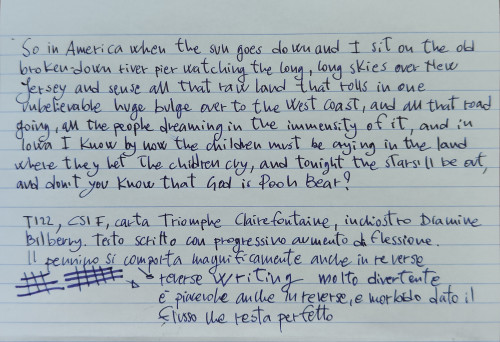 So in America when the sun goes down and I sit on the old
broken-down river pier watching the long, long skies over New
Jersey and sense all that raw land that rolls in one
unbelievable huge bulge over to the West Coast, and all that road
going, all the people dreaming in the immensity of it, and in
Iowa I know by now the children must be crying in the land
where they let the children cry, and tonight the stars'll be out,
and don't you know that God is Pooh Bear?
T122, CSIF, carta Triomphe Clairefontaine, inchiostro Diamine
Bilberry. Testo scritto con progressivo aumento di flessione.
Il pennino si comporta magnificamente anche in reverse
reverse writing molto divertente
e piacevole anche in reverse, e morbido dato il
flusso che resta perfetto